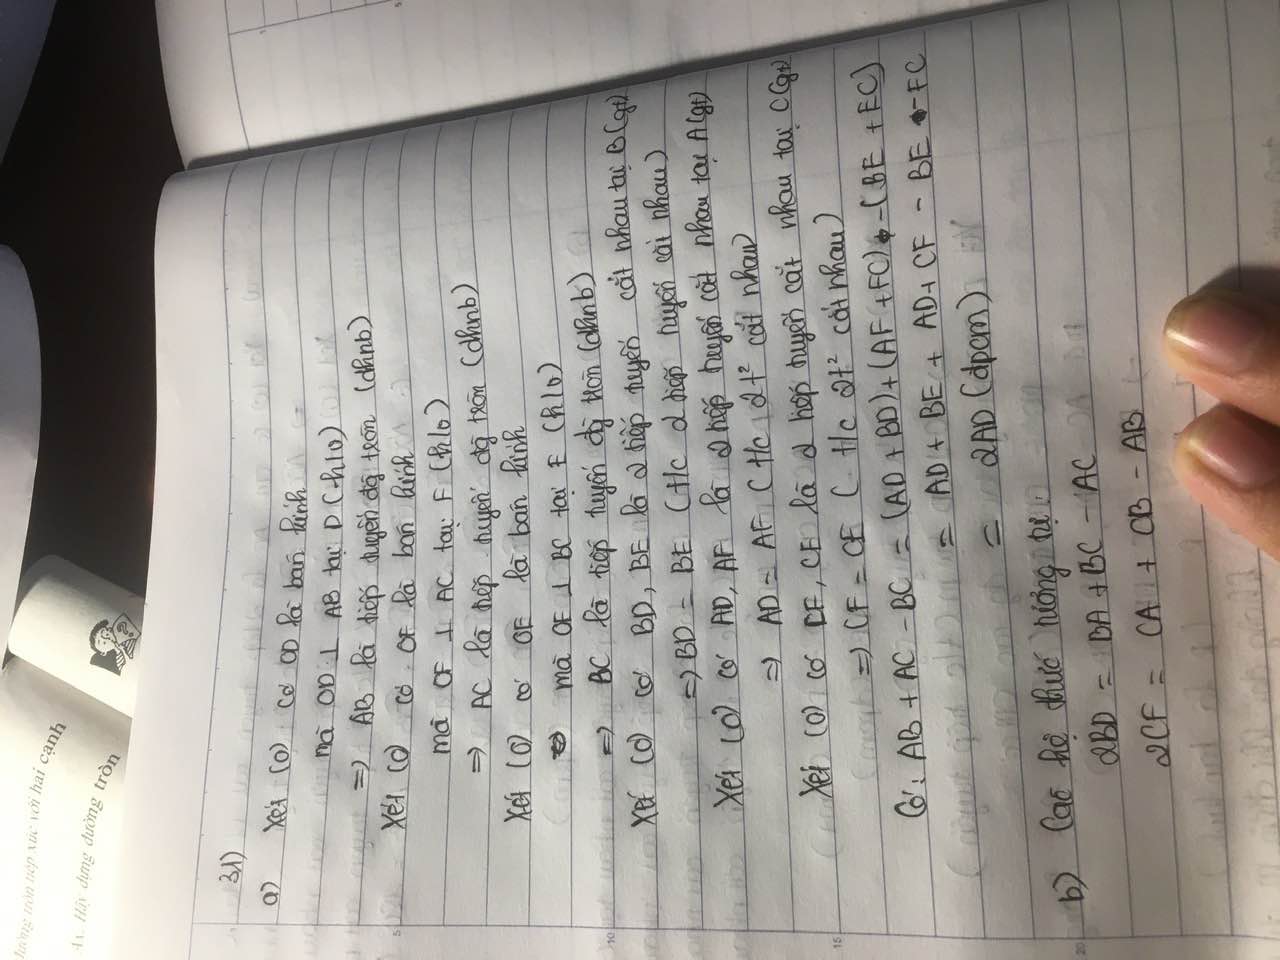 31)
a) Xét (O) có OD là bán kính
mà OD ⊥ AB tại D (htO)
=) AB là tiếp tuyến đg tròn (dhnb)
Xét (O) có OF là bán kính
mà OF ⊥ AC tại F (htO)
=) AC là tiếp tuyến đg tròn (dhnb)
Xét (O) có OE là bán kính
mà OE ⊥ BC tại E (htO)
=) BC là tiếp tuyến đg tròn (dhnb)
Xét (O) có BD, BE là 2 tiếp tuyến cắt nhau tại B (gt)
=) BD = BE (t/c 2 tiếp tuyến cắt nhau)
Xét (O) có AD, AF là 2 tiếp tuyến cắt nhau tại A (gt)
=) AD = AF (t/c 2t² cắt nhau)
Xét (O) có CE là 2 tiếp tuyến cắt nhau tại C (gt)
=) CF = CE (t/c 2t² cắt nhau)
Có: AB + AC - BC = (AD + BD) + (AF + FC) - (BE + EC)
= AD + BE + AD + CF - BE - FC
= 2AD (đpcm)
b) Các hệ thức tương tự:
2BD = BA + BC - AC
2CF = CA + CB - AB
đường tròn tiếp xúc với hai cạnh
Hãy dựng đường tròn